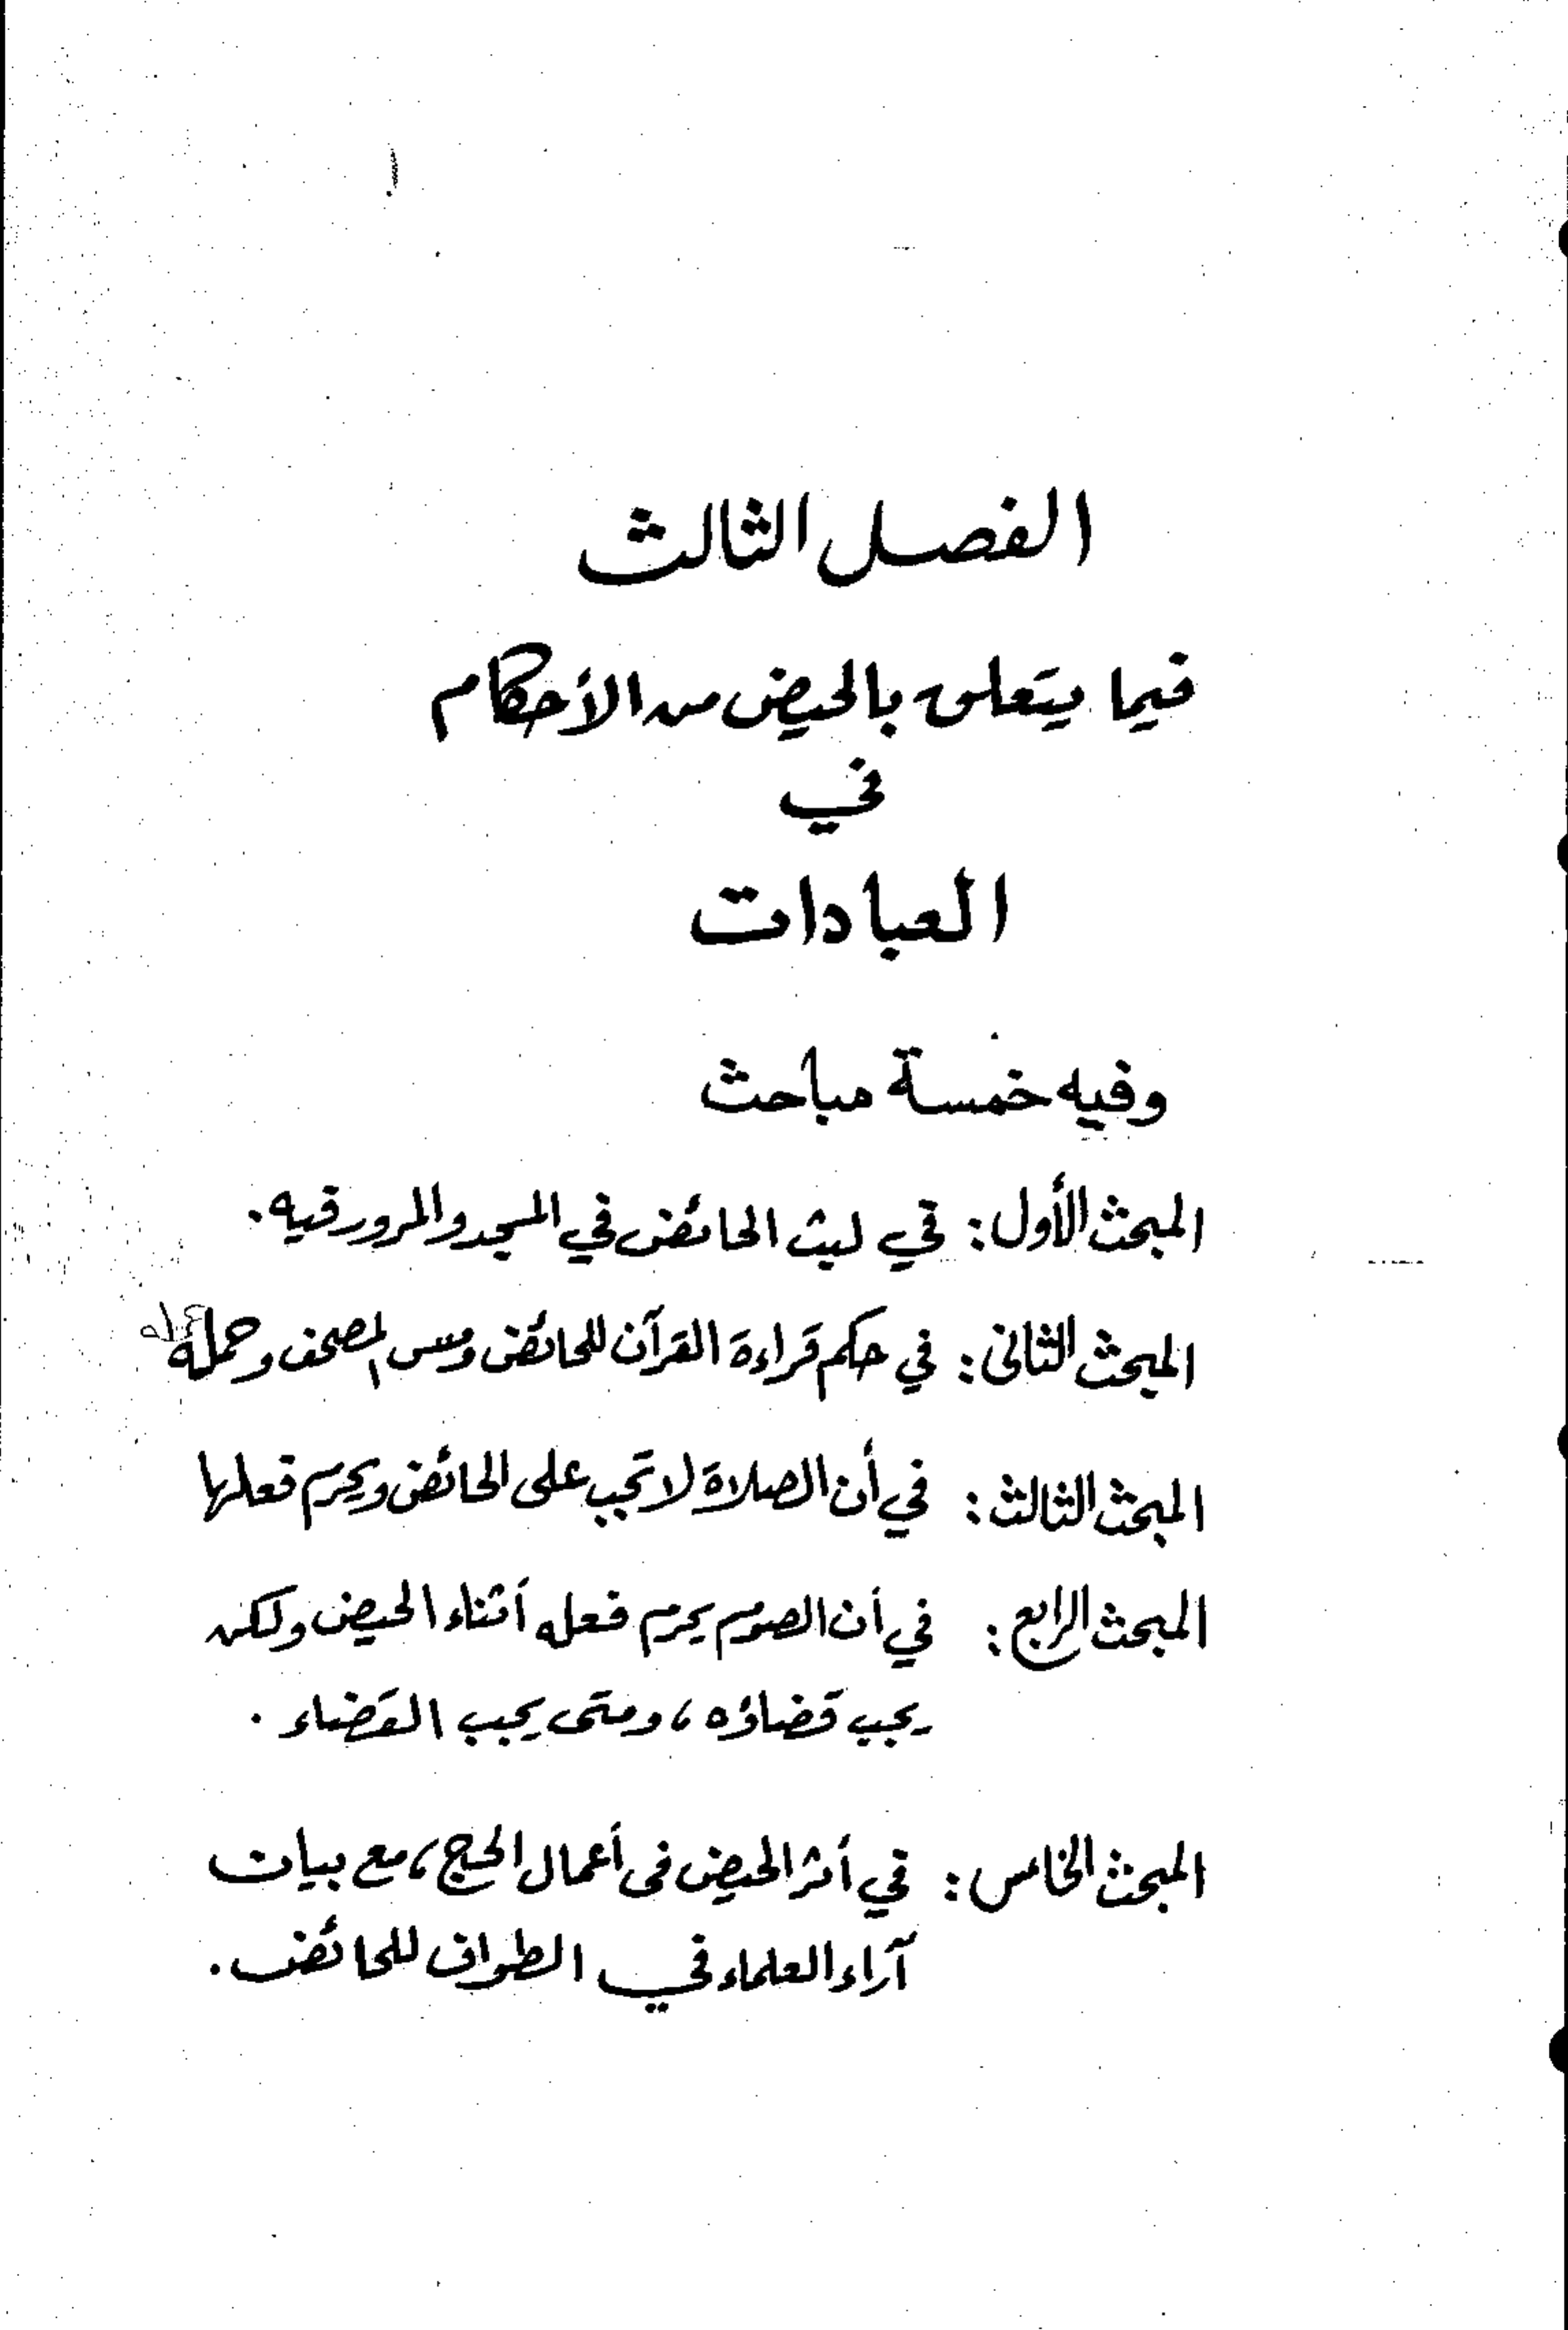 الفصل الثالث
فيما يتعلق بالحيض من الأحكام
في
العبادات
وفيه خمسة مباحث
المبحث الأول: في لبث الحائض في المسجد والمرور فيه.
المبحث الثاني: في حكم قراءة القرآن للحائض ومس المصحف وحمله
المبحث الثالث: في أن الصلاة لا تجب على الحائض ويحرم فعلها
المبحث الرابع: في أن الصوم يحرم فعله أثناء الحيض ولكن
يجب قضاؤه، ومتى يجب القضاء.
المبحث الخامس: في أثر الحيض في أعمال الحج، مع بيان
آراء العلماء في الطواف للحائض.